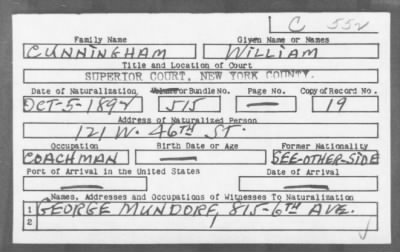 C 552
Family Name Given Name or Names
CUNNINGHAM WILLIAM
Title and Location of Court
SUPERIOR COURT, NEW YORK COUNTY.
Date of Naturalization Volume or Bundle No. Page No. Copy of Record No.
OCT-5-1892 515 — 19
Address of Naturalized Person
121 W. 46TH ST.
Occupation Birth Date or Age Former Nationality
COACHMAN — SEE-OTHER-SIDE
Port of Arrival in the United States Date of Arrival
— —
Names, Addresses and Occupations of Witnesses To Naturalization
1 GEORGE MUNDORF, 815-6TH AVE.
2